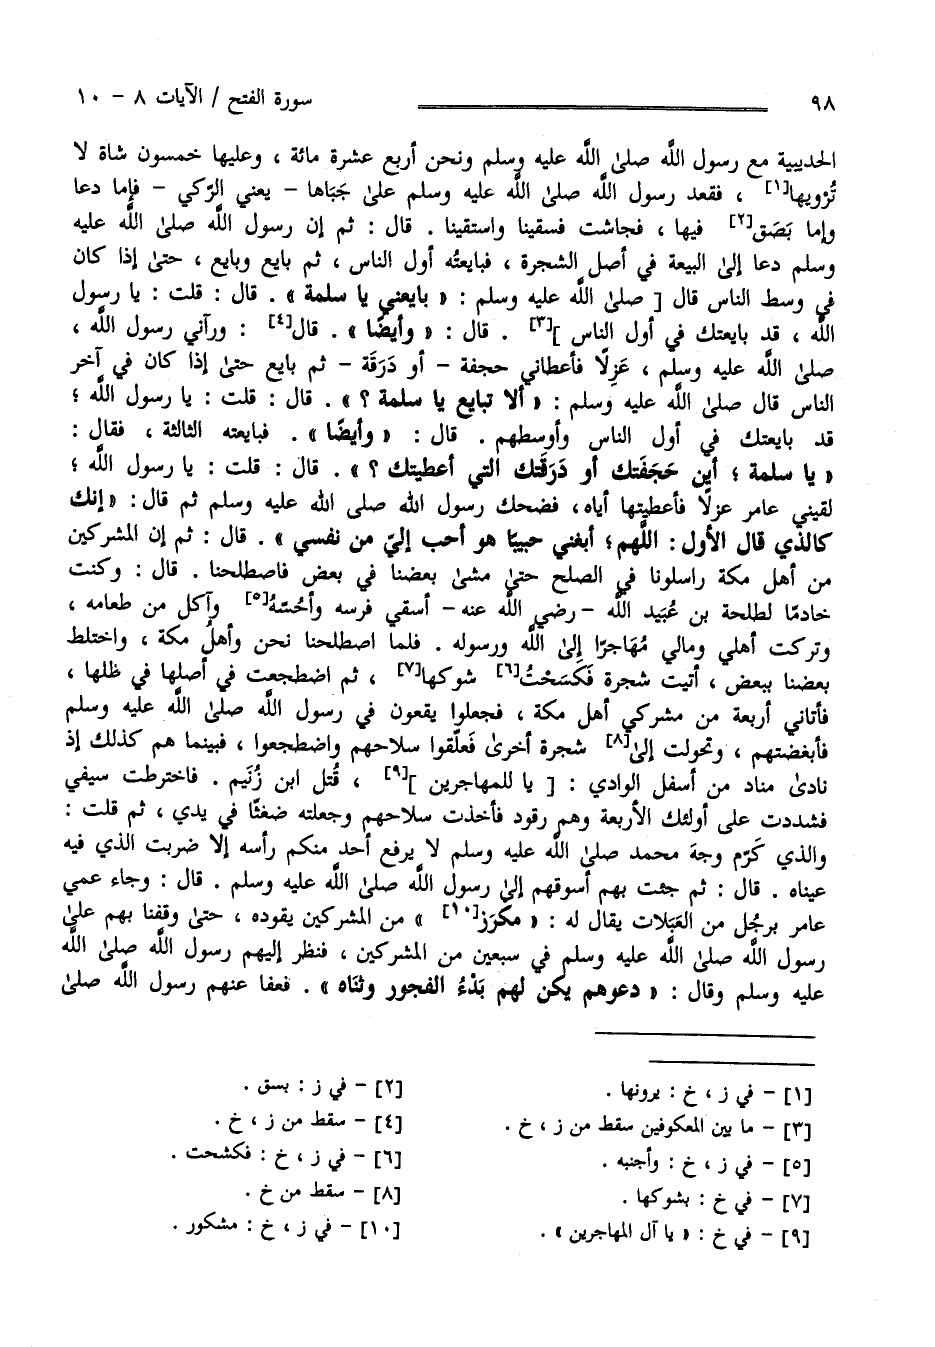 ٩٨ سورة الفتح / الآيات ٨ - ١٠
الحديبية مع رسول اللَّه صلىٰ اللَّه عليه وسلم ونحن أربع عشرة مائة ، وعليها خمسون شاة لا
تُرْويها[١] ، فقعد رسول اللَّه صلىٰ اللَّه عليه وسلم علىٰ جَبَاها - يعني الرّكي - فإما دعا
وإما بَصَق[٢] فيها ، فجاشت فسقينا واستقينا . قال : ثم إن رسول اللَّه صلىٰ اللَّه عليه
وسلم دعا إلىٰ البيعة في أصل الشجرة ، فبايعتُه أول الناس ، ثم بايع وبايع ، حتىٰ إذا كان
في وسط الناس قال [ صلىٰ اللَّه عليه وسلم : « بايعني يا سلمة » . قال : قلت : يا رسول
اللَّه ، قد بايعتك في أول الناس ][٣] . قال : « وأيضًا » . قال[٤] : ورآني رسول اللَّه ،
صلىٰ اللَّه عليه وسلم ، عَزِلًا فأعطاني حجفة - أو دَرَقَة - ثم بايع حتىٰ إذا كان في آخر
الناس قال صلىٰ اللَّه عليه وسلم : « ألا تبايع يا سلمة ؟ » . قال : قلت : يا رسول اللَّه ؛
قد بايعتك في أول الناس وأوسطهم . قال : « وأيضًا » . فبايعته الثالثة ، فقال :
« يا سلمة ؛ أين حَجَفَتك أو دَرَقَتك التي أعطيتك ؟ » . قال : قلت : يا رسول اللَّه ؛
لقيني عامر عزلًا فأعطيتها أياه، فضحك رسول الله صلى الله عليه وسلم ثم قال: « إنك
كالذي قال الأول : اللَّهم؛ أبغني حبيبًا هو أحب إليّ من نفسي » . قال : ثم إن المشركين
من أهل مكة راسلونا في الصلح حتىٰ مشىٰ بعضنا في بعض فاصطلحنا . قال : وكنت
خادمًا لطلحة بن عُبَيد اللَّه - رضي اللَّه عنه - أسقي فرسه وأحُسّهُ[٥] وآكل من طعامه ،
وتركت أهلي ومالي مُهَاجرًا إلىٰ اللَّه ورسوله . فلما اصطلحنا نحن وأهلُ مكة ، واختلط
بعضنا ببعض ، أتيت شجرة فَكَسَحْتُ[٦] شوكها[٧] ، ثم اضطجعت في أصلها في ظلها ،
فأتاني أربعة من مشركي أهل مكة ، فجعلوا يقعون في رسول اللَّه صلىٰ اللَّه عليه وسلم
فأبغضتهم ، وتحولت إلىٰ[٨] شجرة أخرىٰ فَعلّقوا سلاحهم واضطجعوا ، فبينما هم كذلك إذ
نادىٰ مناد من أسفل الوادي : [ يا للمهاجرين ][٩] ، قُتل ابن زُنَيم . فاخترطت سيفي
فشددت على أولئك الأربعة وهم رقود فأخذت سلاحهم وجعلته ضغثًا في يدي ، ثم قلت :
والذي كَرّم وجهَ محمد صلىٰ اللَّه عليه وسلم لا يرفع أحد منكم رأسه إلا ضربت الذي فيه
عيناه . قال : ثم جئت بهم أسوقهم إلىٰ رسول اللَّه صلىٰ اللَّه عليه وسلم . قال : وجاء عمي
عامر برجُل من العَبَلات يقال له : « مكْرَز[١٠] » من المشركين يقوده ، حتىٰ وقفنا بهم علىٰ
رسول اللَّه صلىٰ اللَّه عليه وسلم في سبعين من المشركين ، فنظر إليهم رسول اللَّه صلىٰ اللَّه
عليه وسلم وقال : « دعوهم يكن لهم بَدْءُ الفجور وثنَاه » . فعفا عنهم رسول اللَّه صلىٰ
[١] - في ز ، خ : يرونها . [٢] - في ز : بسق .
[٣] - ما بين المعكوفين سقط من ز ، خ . [٤] - سقط من ز ، خ .
[٥] - في ز ، خ : وأجنبه . [٦] - في ز ، خ : فكشحت .
[٧] - في خ : بشوكها . [٨] - سقط من خ .
[٩] - في خ : « يا آل المهاجرين » . [١٠] - في ز ، خ : مشكور .